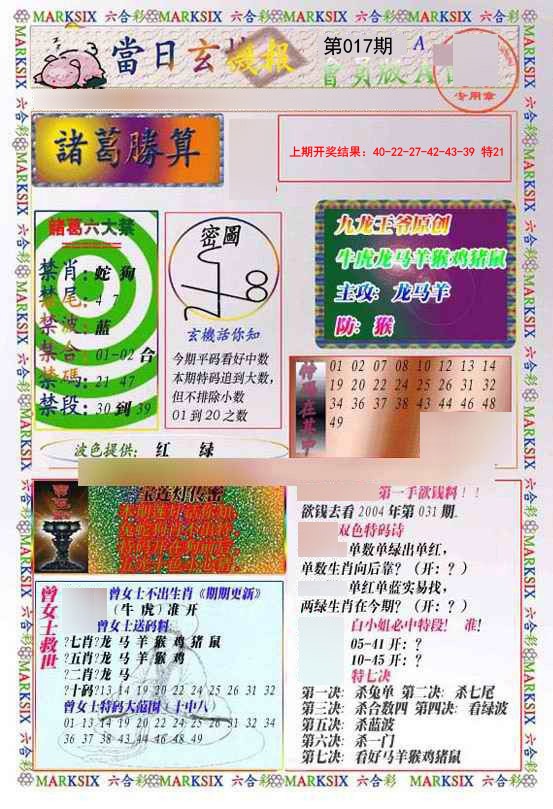 MARKSIX 六合彩 MARKSIX 六合彩 MARKSIX 六合彩 MARKSIX 六合彩 MARKSIX
當日玄機報
第017期
A
會員版A
专用章
諸葛勝算
上期开奖结果：40-22-27-42-43-39 特21
諸葛六大禁
禁肖：蛇 狗
禁尾：4 7
禁波：蓝
禁合：01-02 合
禁碼：21 47
禁段：30到39
密圖
玄機話你知
今期平码看好中数
本期特码追到大数，
但不排除小数
01 到 20 之数
九龙王爷原创
牛虎龙马羊猴鸡猪鼠
主攻：龙马羊
防：猴
01 02 07 08 10 12 13 14
19 20 22 24 25 26 31 32
34 36 37 38 43 44 46 48
49
波色提供： 红 绿
宝莲灯传密
第一手欲钱料！！
欲钱去看 2004 年第 031 期.
双色特码诗
单数单绿出单红，
单数生肖向后靠？（开：？）
单红单蓝实易找，
两绿生肖在今期？（开：？）
白小姐必中特段！ 准！
05-41 开：？
10-45 开：？
特七决
第一决：杀兔单 第二决：杀七尾
第三决：杀合数四 第四决：看绿波
第五决：杀蓝波
第六决：杀一门
第七决：看好马羊猴鸡猪鼠
曾女士救世
曾女士不出生肖《期期更新》
（牛 虎）准 开
曾女士送码料
?七肖?龙 马 羊 猴 鸡 猪 鼠
?五肖?龙 马 羊 猴 鸡
?二肖?龙 马
?十码?13 14 19 20 22 24 25 26 31 32
曾女士特码大范围（十中八）
01 13 14 19 20 22 24 25 26 31 32 34
36 37 38 43 44 46 48 49
MARKSIX 六合彩 MARKSIX 六合彩 MARKSIX 六合彩 MARKSIX 六合彩 MARKSIX